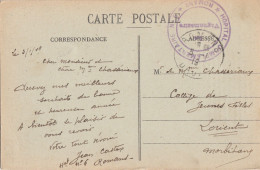 CARTE POSTALE
CORRESPONDANCE
ADRESSE
Cher Monsieur et
Mme Chassériaux
Recevez nos meilleurs
souhaits de bonne
et heureuse année
A bientôt le plaisir de
vous revoir
Votre tout dévoué
Jean
M. et Mme Chassériaux
Collège de
Jeunes Filles
Lorient
Morbihan